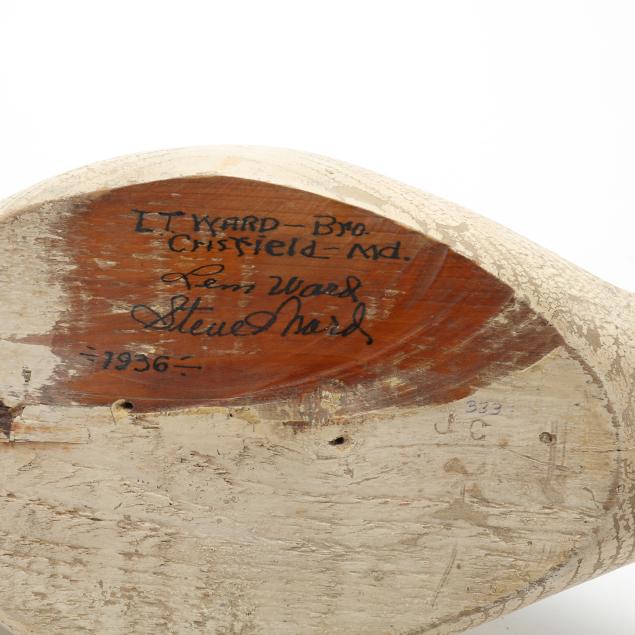 L.T. WARD - BRO.
CRISFIELD - Md.
Lem Ward
Steve Ward
÷ 1936 ÷
333
J C